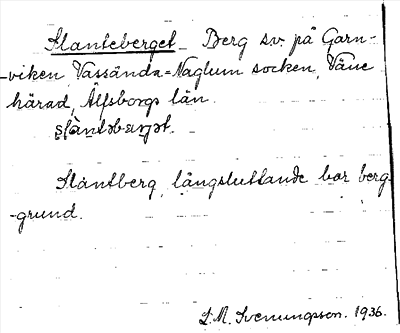 Slanteberget Berg sv på Garn-
-viken, Vassända=Naglum socken, Väne
härad, Älfsborgs län.
Slantberg, långsluttande bar berg-
-grund.
S. M. Svenungsson. 1936.